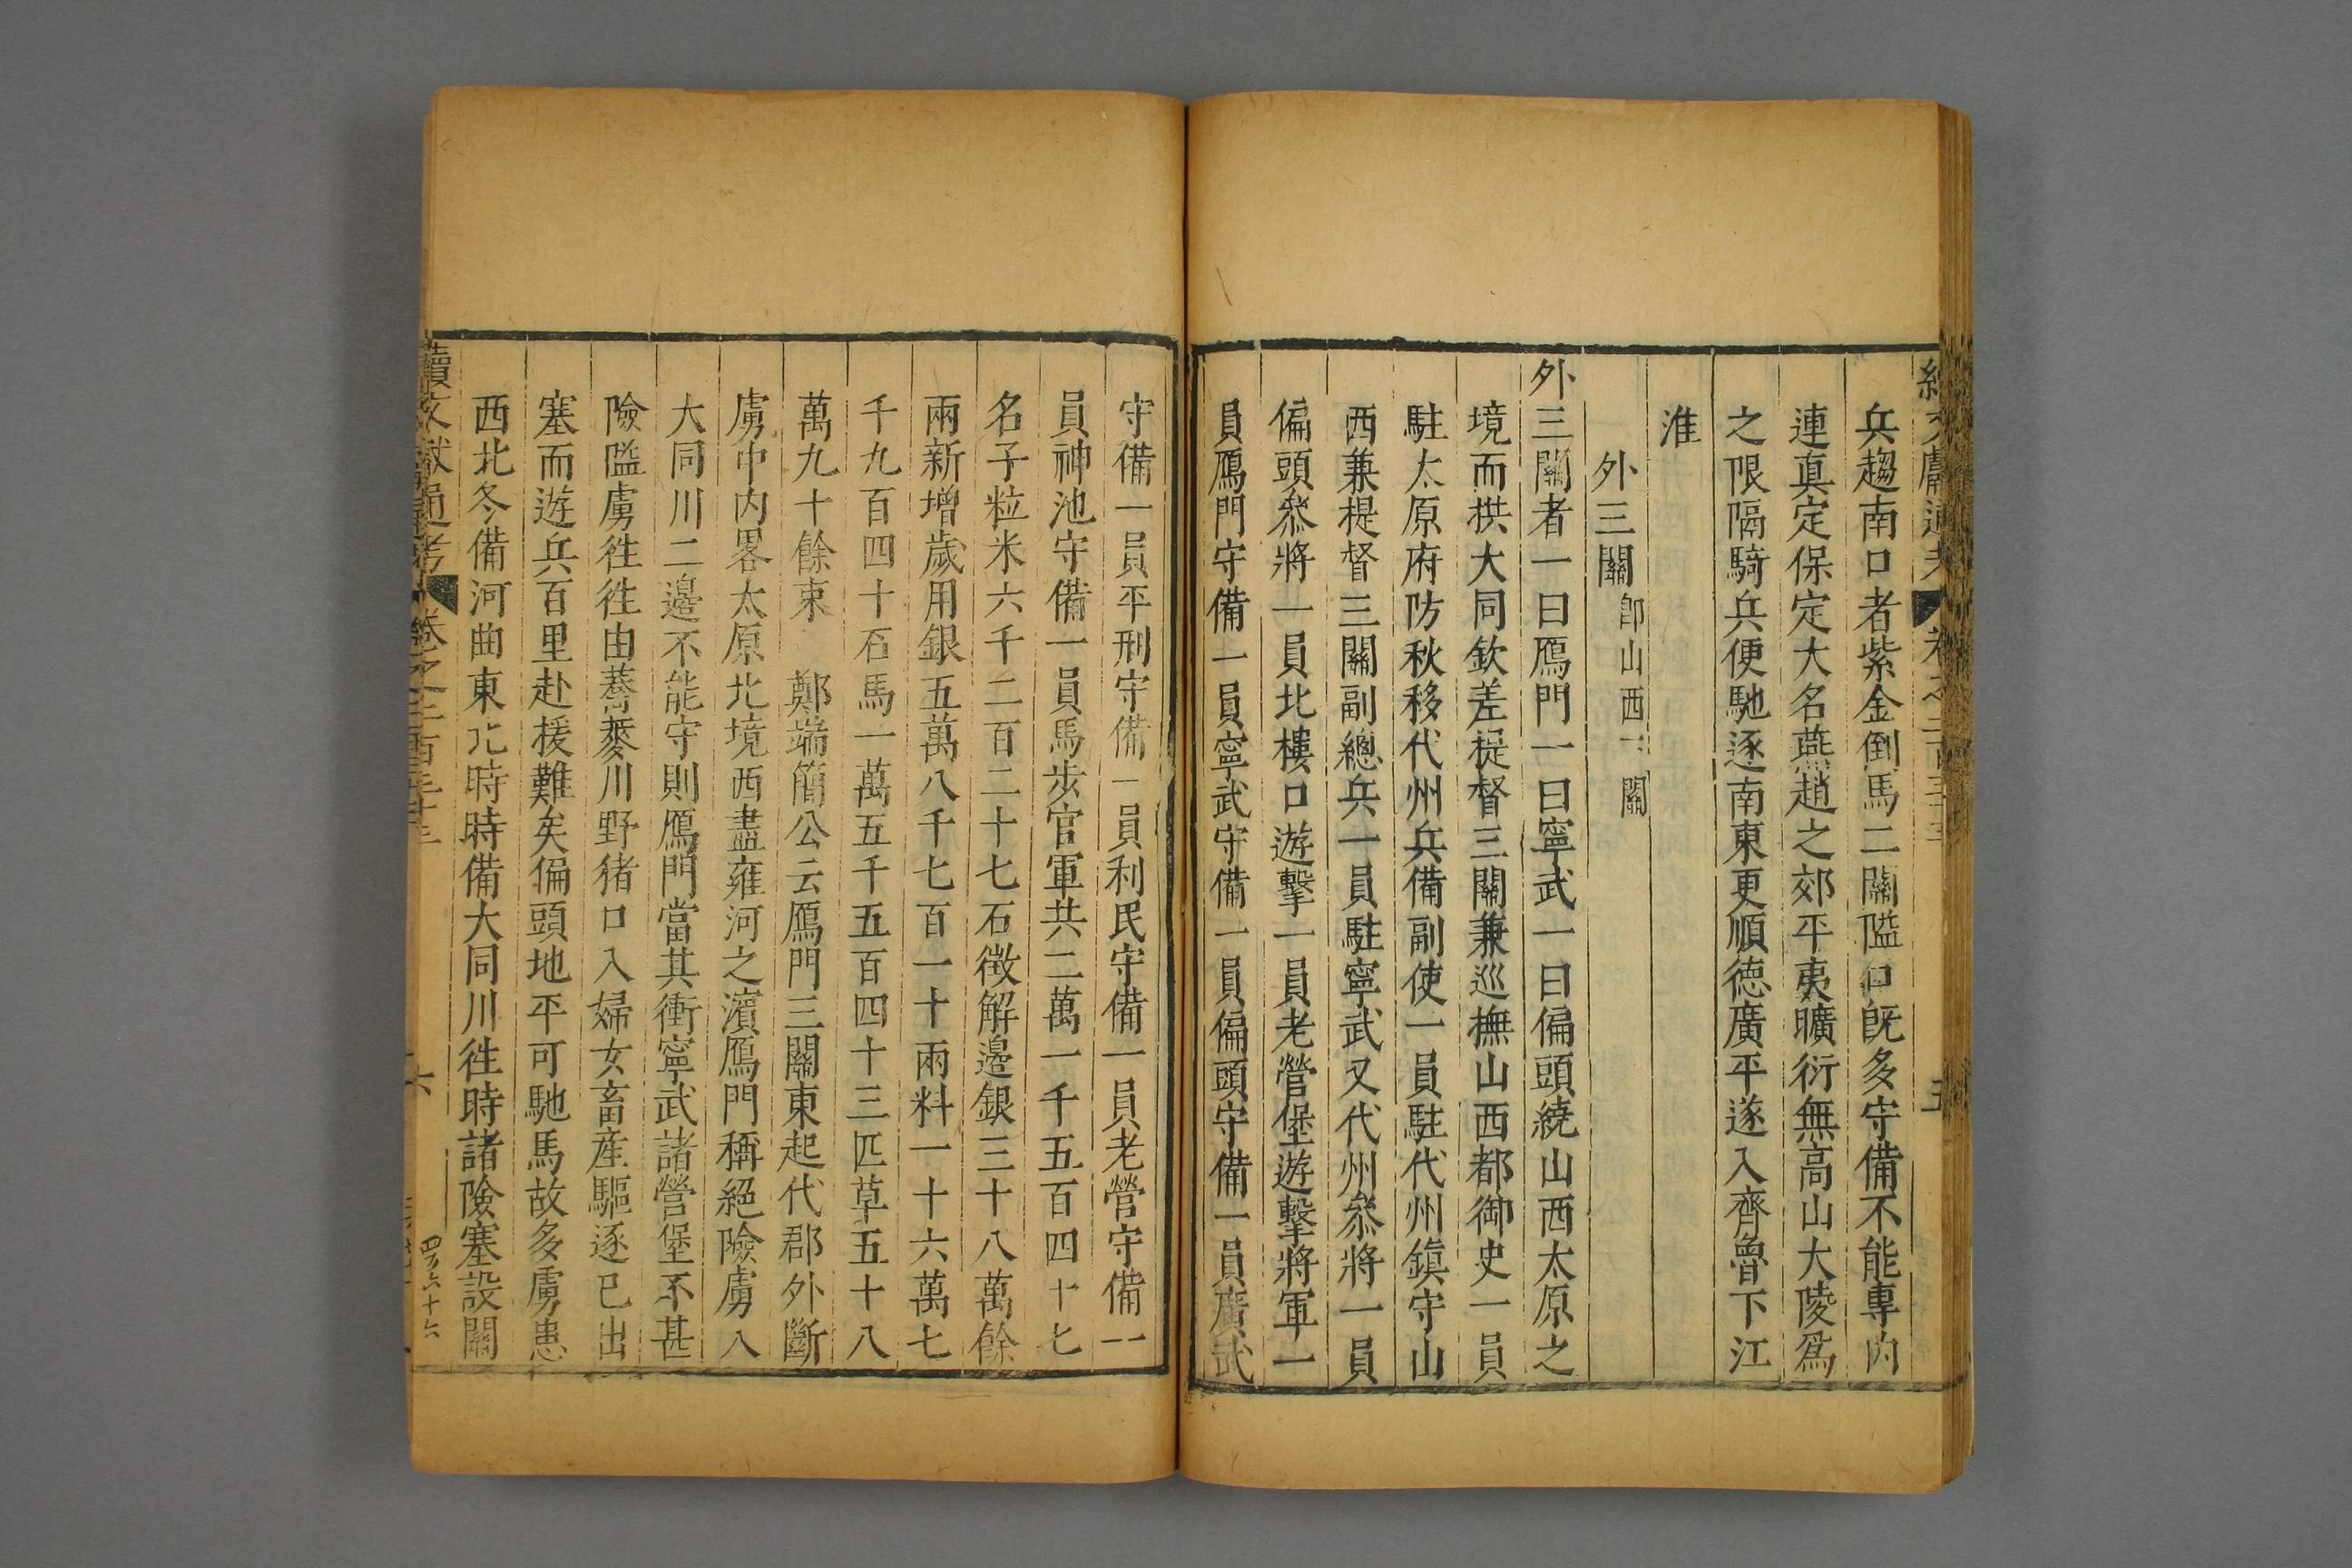 兵趨南口者紫金倒馬二關隘口旣多守備不能專内
連真定保定大名燕趙之郊平夷曠衍無高山大陵爲
之限隔騎兵便馳逐南東更順德廣平遂入齊魯下江
淮
外三關卽山西 關
外三關者一曰鴈門一曰寧武一曰偏頭繞山西太原之
境而拱大同欽差提督三關兼巡撫山西都御史一員
駐太原府防秋移代州兵備副使一員駐代州鎮守山
西兼提督三關副總兵一員駐寧武又代州叅將一員
偏頭叅將一員北樓口遊擊一員老營堡遊擊將軍一
員鴈門守備一員寧武守備一員偏頭守備一員廣武
守備一員平刑守備一員利民守備一員老營守備一
員神池守備一員馬步官軍共二萬一千五百四十七
名子粒米六千二百二十七石徵解邊銀三十八萬餘
兩新增歲用銀五萬八千七百一十兩料一十六萬七
千九百四十石馬一萬五千五百四十三匹草五十八
萬九十餘束 鄭端簡公云鴈門三關東起代郡外斷
虜中内畧太原北境西盡雍河之濵鴈門稱絕險虜入
大同川二邉不能守則鴈門當其衝寧武諸營堡不甚
險隘虜徃徃由蕎麥川野猪口入婦女畜産驅逐已出
塞而遊兵百里赴援難矣偏頭地平可馳馬故多虜患
西北冬備河曲東北時時備大同川徃時諸險塞設關
續文獻通考 卷之二百三十三
六